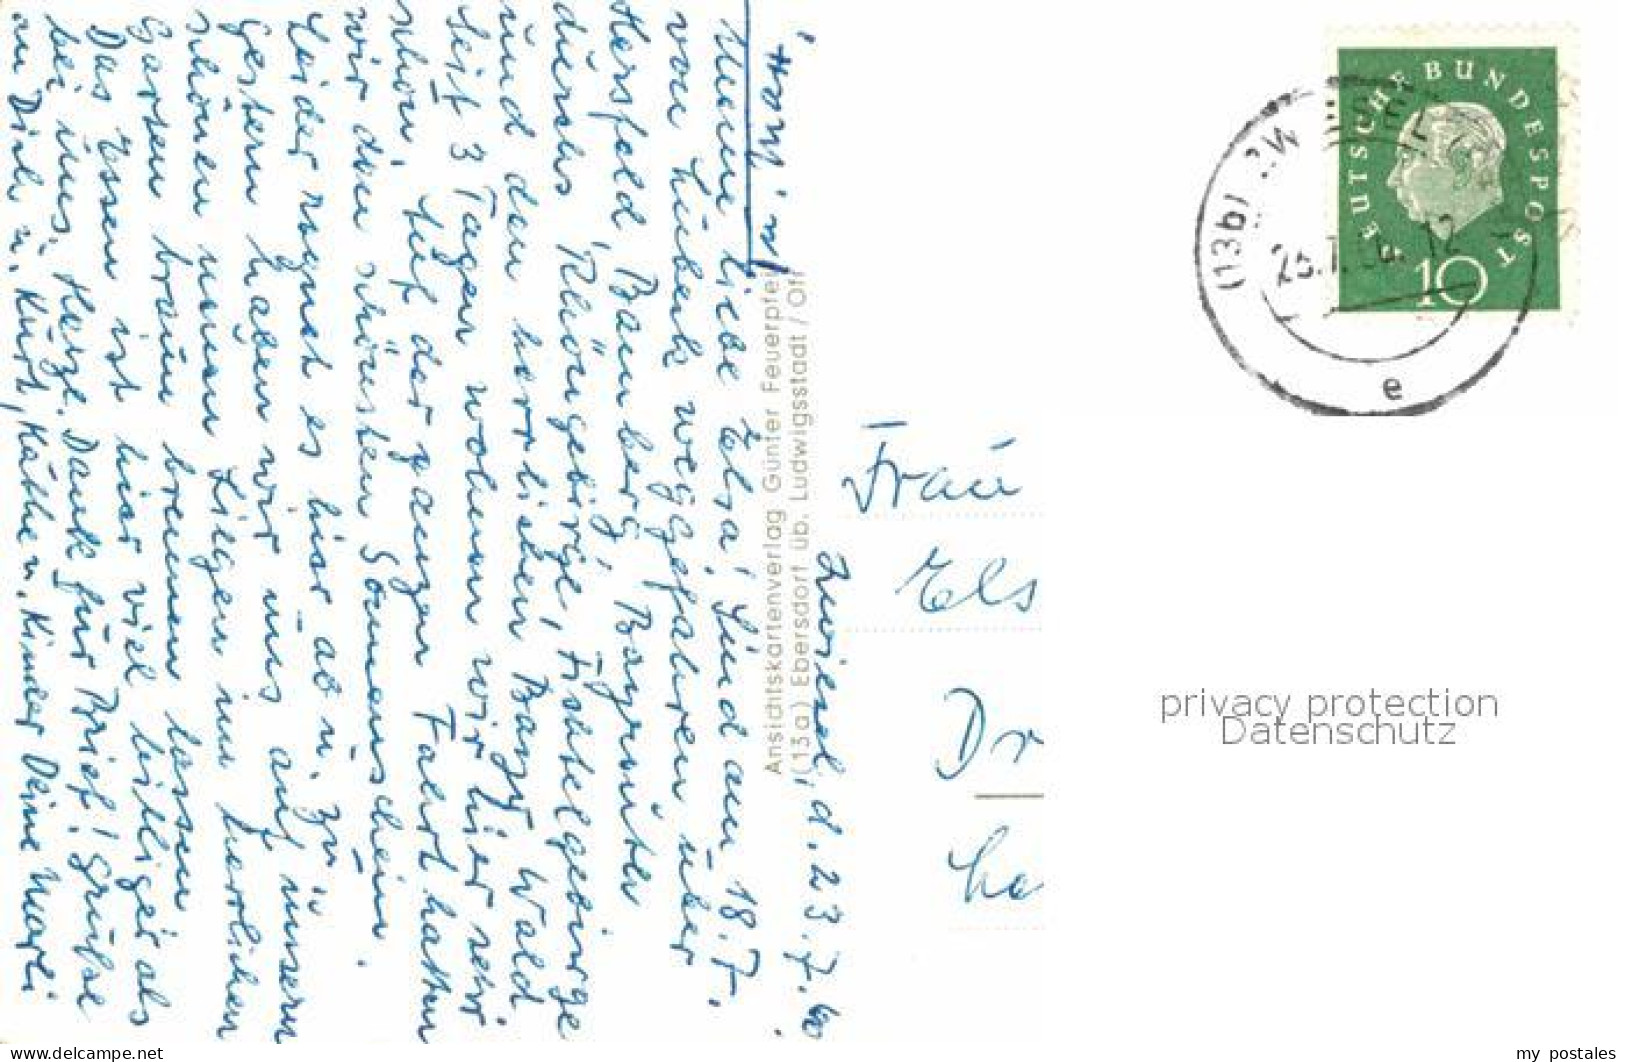 Zwiesel, d. 23.7.60
Meine liebe Elsa! Sind am 18.7.
von Lübeck weggefahren über
Hersfeld, Bamberg, Bayreuth
durchs Rhöngebirge, Fichtelgebirge
und den herrlichen Bayr. Wald
Seit 3 Tagen wohnen wir hier sehr
schön. Auf der ganzen Fahrt hatten
wir den schönsten Sonnenschein.
Leider regnet es hier ab u. zu
Gestern haben wir uns auf unsern
schönen neuen Liegen im herrlichen
Garten braun brennen lassen
Das Essen ist hier viel billiger als
bei uns. Herzl. Dank für Brief! Grüße
an Dich u. Kurt, Käthe u. Kinder Deine Marli
Ansichtskartenverlag Günter Feuerpfeil
(13a) Ebersdorf üb. Ludwigsstadt / Ofr
Frau
Els
Dr
DEUTSCHE BUNDESPOST
10
(13b) ZWIESEL
23.7.60. 12
e
privacy protection
Datenschutz
www.delcampe.net
my_postales